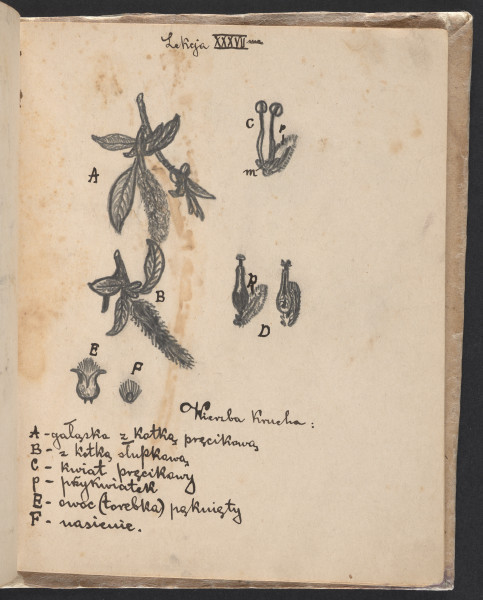 Lekcja XXXVII-ma
A
C
p
m
B
p
D
E
F
Wierzba krucha:
A - gałąska z kotką pręcikową
B - z kotką słupkową
C - kwiat pręcikowy
p - przykwiatek
E - owoc (torebka) pęknięty
F - nasienie.